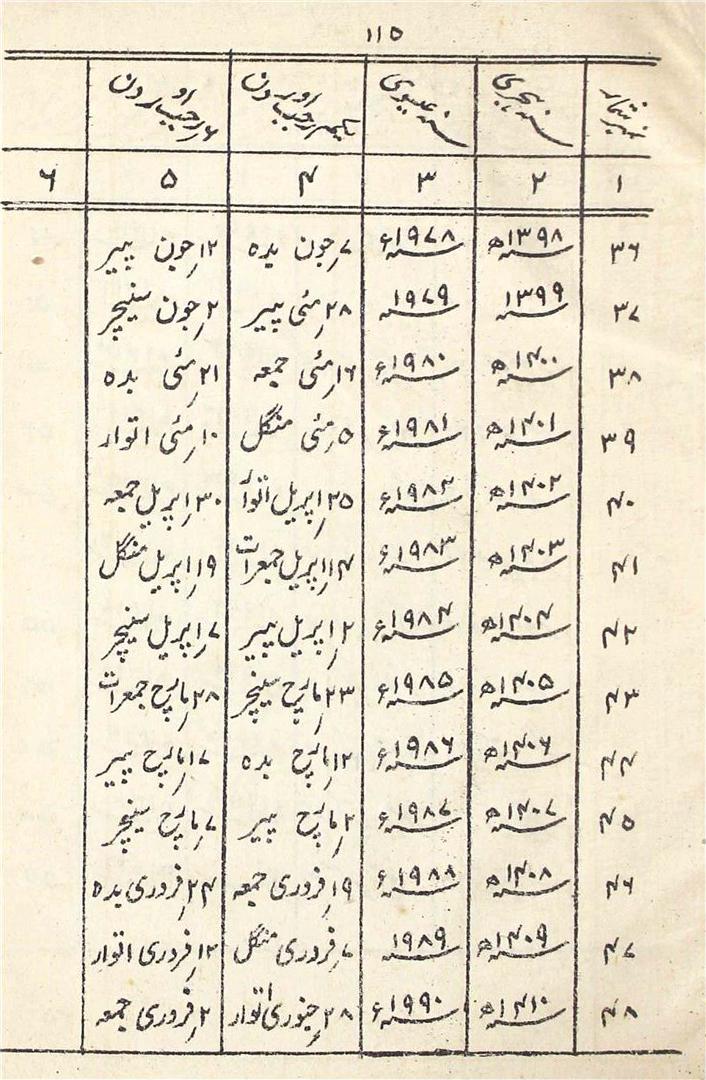 ۱۱۵
نمبر شمار سنہ ہجری سنہ عیسوی یکم رجب اور دن ۶ رجب اور دن
۱ ۲ ۳ ۴ ۵ ۶
۳۶ ۱۳۹۸ھ ۱۹۷۸ء ۷؍جون بدھ ۱۲؍جون پیر
۳۷ ۱۳۹۹ ۱۹۷۹ ۲۸؍مئی پیر ۲؍جون سنیچر
۳۸ ۱۴۰۰ھ ۱۹۸۰ء ۱۶؍مئی جمعہ ۲۱؍مئی بدھ
۳۹ ۱۴۰۱ھ ۱۹۸۱ء ۵؍مئی منگل ۱۰؍مئی اتوار
۴۰ ۱۴۰۲ھ ۱۹۸۲ء ۲۵؍اپریل اتوار ۳۰؍اپریل جمعہ
۴۱ ۱۴۰۳ھ ۱۹۸۳ء ۱۴؍اپریل جمعرات ۱۹؍اپریل منگل
۴۲ ۱۴۰۴ھ ۱۹۸۴ء ۲؍اپریل پیر ۷؍اپریل سنیچر
۴۳ ۱۴۰۵ھ ۱۹۸۵ء ۲۳؍مارچ سنیچر ۲۸؍مارچ جمعرات
۴۴ ۱۴۰۶ھ ۱۹۸۶ء ۱۲؍مارچ بدھ ۱۷؍مارچ پیر
۴۵ ۱۴۰۷ھ ۱۹۸۷ء ۲؍مارچ پیر ۷؍مارچ سنیچر
۴۶ ۱۴۰۸ھ ۱۹۸۸ء ۱۹؍فروری جمعہ ۲۴؍فروری بدھ
۴۷ ۱۴۰۹ھ ۱۹۸۹ ۷؍فروری منگل ۱۲؍فروری اتوار
۴۸ ۱۴۱۰ھ ۱۹۹۰ء ۲۸؍جنوری اتوار ۲؍فروری جمعہ